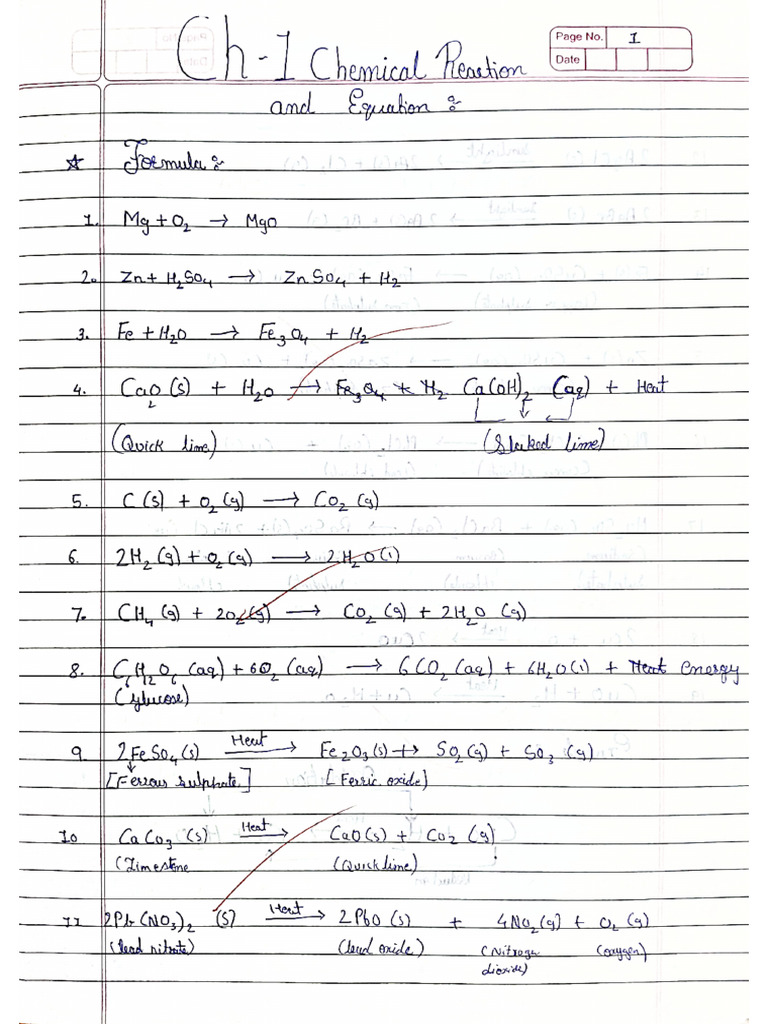 Page No. 1
Date
Ch-1 Chemical Reaction
and Equation :-
☆ Formula :-
1. Mg + O2 → MgO
2. Zn + H2SO4 → ZnSO4 + H2
3. Fe + H2O → Fe3O4 + H2
4. CaO2 (s) + H2O → Fe3O4 + H2 Ca(OH)2 (aq) + Heat
(Quick lime) (Slaked lime)
5. C (s) + O2 (g) → CO2 (g)
6. 2H2 (g) + O2 (g) → 2H2O (l)
7. CH4 (g) + 2O2 (g) → CO2 (g) + 2H2O (g)
8. C6H12O6 (aq) + 6O2 (aq) → 6CO2 (aq) + 6H2O (l) + Heat energy
(glucose)
9. 2FeSO4 (s) Heat → Fe2O3 (s) + SO2 (g) + SO3 (g)
[Ferrous sulphate] [Ferric oxide)
10 CaCO3 (s) Heat → CaO (s) + CO2 (g)
(Limestone (Quick lime)
11 2Pb(NO3)2 (s) Heat → 2PbO (s) + 4NO2 (g) + O2 (g)
(lead nitrate) (lead oxide) (Nitrogen (oxygen)
dioxide)